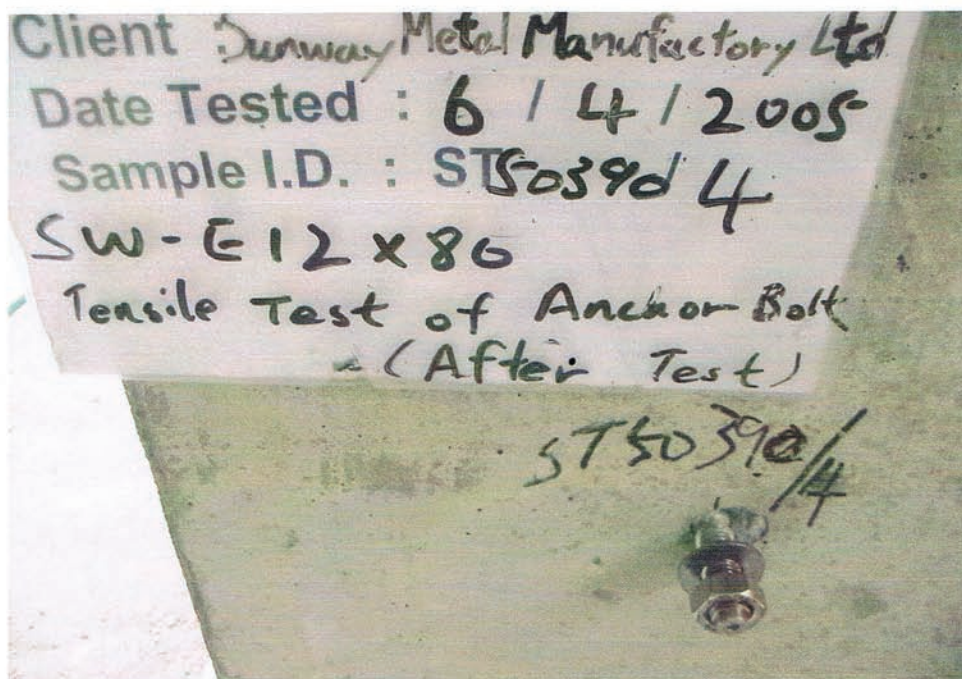 Client : Sunway Metal Manufactory Ltd
Date Tested : 6 / 4 / 2005
Sample I.D. : ST50390/4
SW-E12x80
Tensile Test of Anchor Bolt
(After Test)
ST50390/4